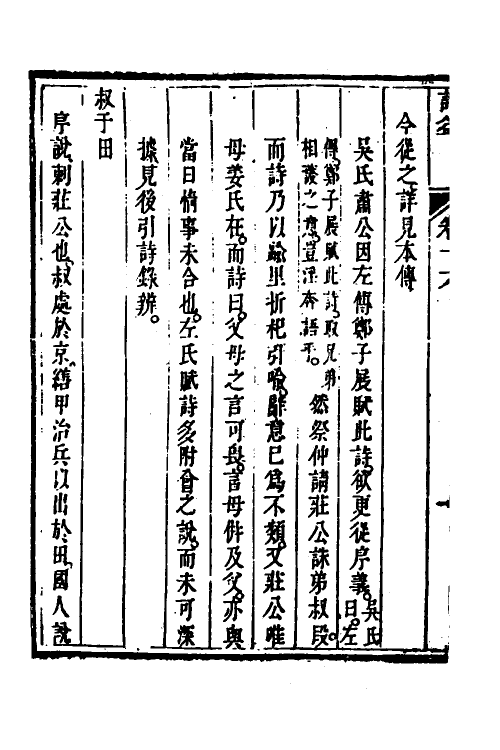 卷十六
今從之詳見本傳
吳氏肅公因左傳鄭子展賦此詩欲更從序義。吳氏曰。左
傳鄭子展賦此詩。取兄弟相發之意。豈淫奔語乎。然祭仲請莊公誅弟叔段。
而詩乃以踰里折杞引喻。辭意已為不類。又莊公唯
母姜氏在。而詩曰。父母之言可畏。言母併及父。亦與
當日情事未合也。左氏賦詩多附會之說。而未可深
據。見後引詩錄辨。
叔于田
序說。刺莊公也。叔處於京。繕甲治兵。以出於田。國人說